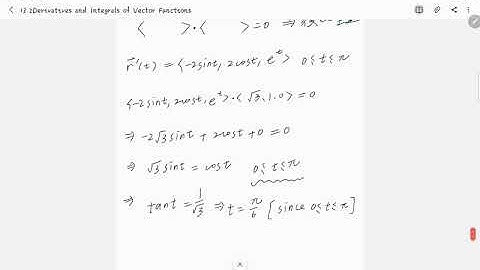 13.2Derivatives and Integrals of Vector Functions
< >·< > =0 ⇒
r⃗'(t) = <-2sint, 2cost, e^t> 0≤t≤π
<-2sint, 2cost, e^t>·<√3, 1, 0> = 0
⇒ -2√3 sint + 2cost + 0 = 0
⇒ √3 sint = cost 0≤t≤π
⇒ tant = 1/√3 ⇒ t = π/6 [since 0≤t≤π]